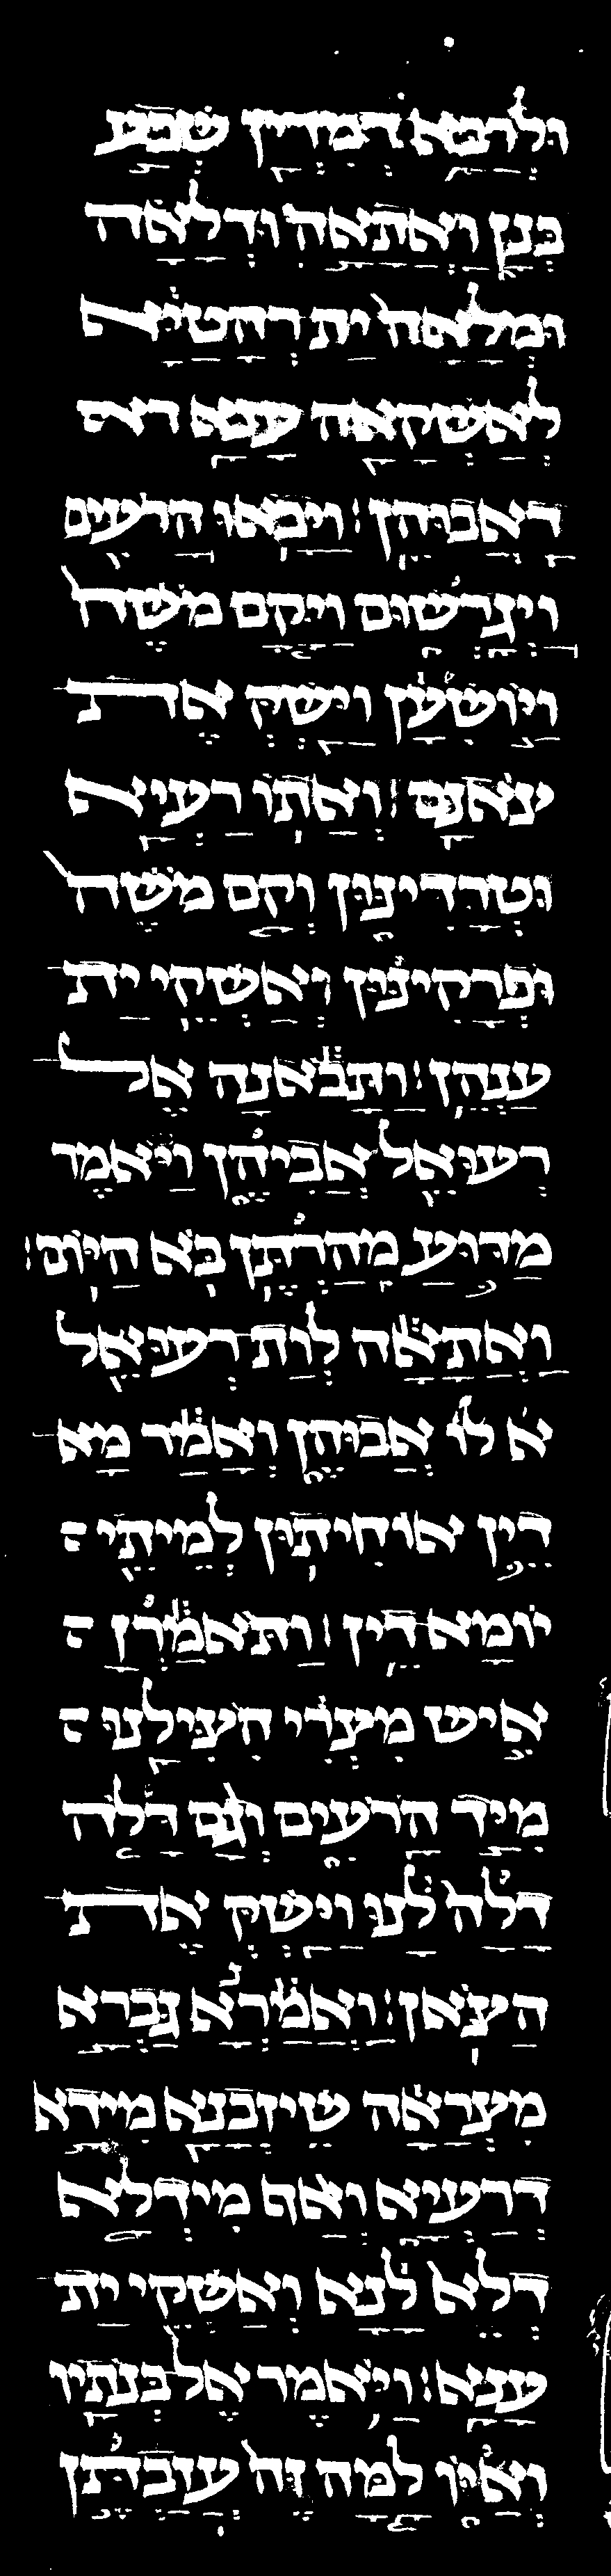 ולרבא דמדין שבע
בנן ואתאה ודלאה
ומלאה ית רהטיא
לאשקאה ענא דא
דאבוהן׃ ויבאו הרעים
ויגרשום ויקם משה
ויושען וישק את
צאנם׃ ואתו רעיא
וטרדינון וקם משה
ופרקינון ואשקי ית
ענהן׃ ותבאנה אל
רעואל אביהן ויאמר
מדוע מהרתן בא היום׃
ואתאה לות רעואל
א לו אבוהן ואמר מא
דין אוחיתון למיתי
יומא דין׃ ותאמרן
איש מצרי הצילנו
מיד הרעים וגם דלה
דלה לנו וישק את
הצאן׃ ואמרא גברא
מצראה שיזבנא מידא
דרעיא ואף מידלא
דלא לנא ואשקי ית
ענא׃ ויאמר אל בנתיו
ואיו למה זה עזבתן